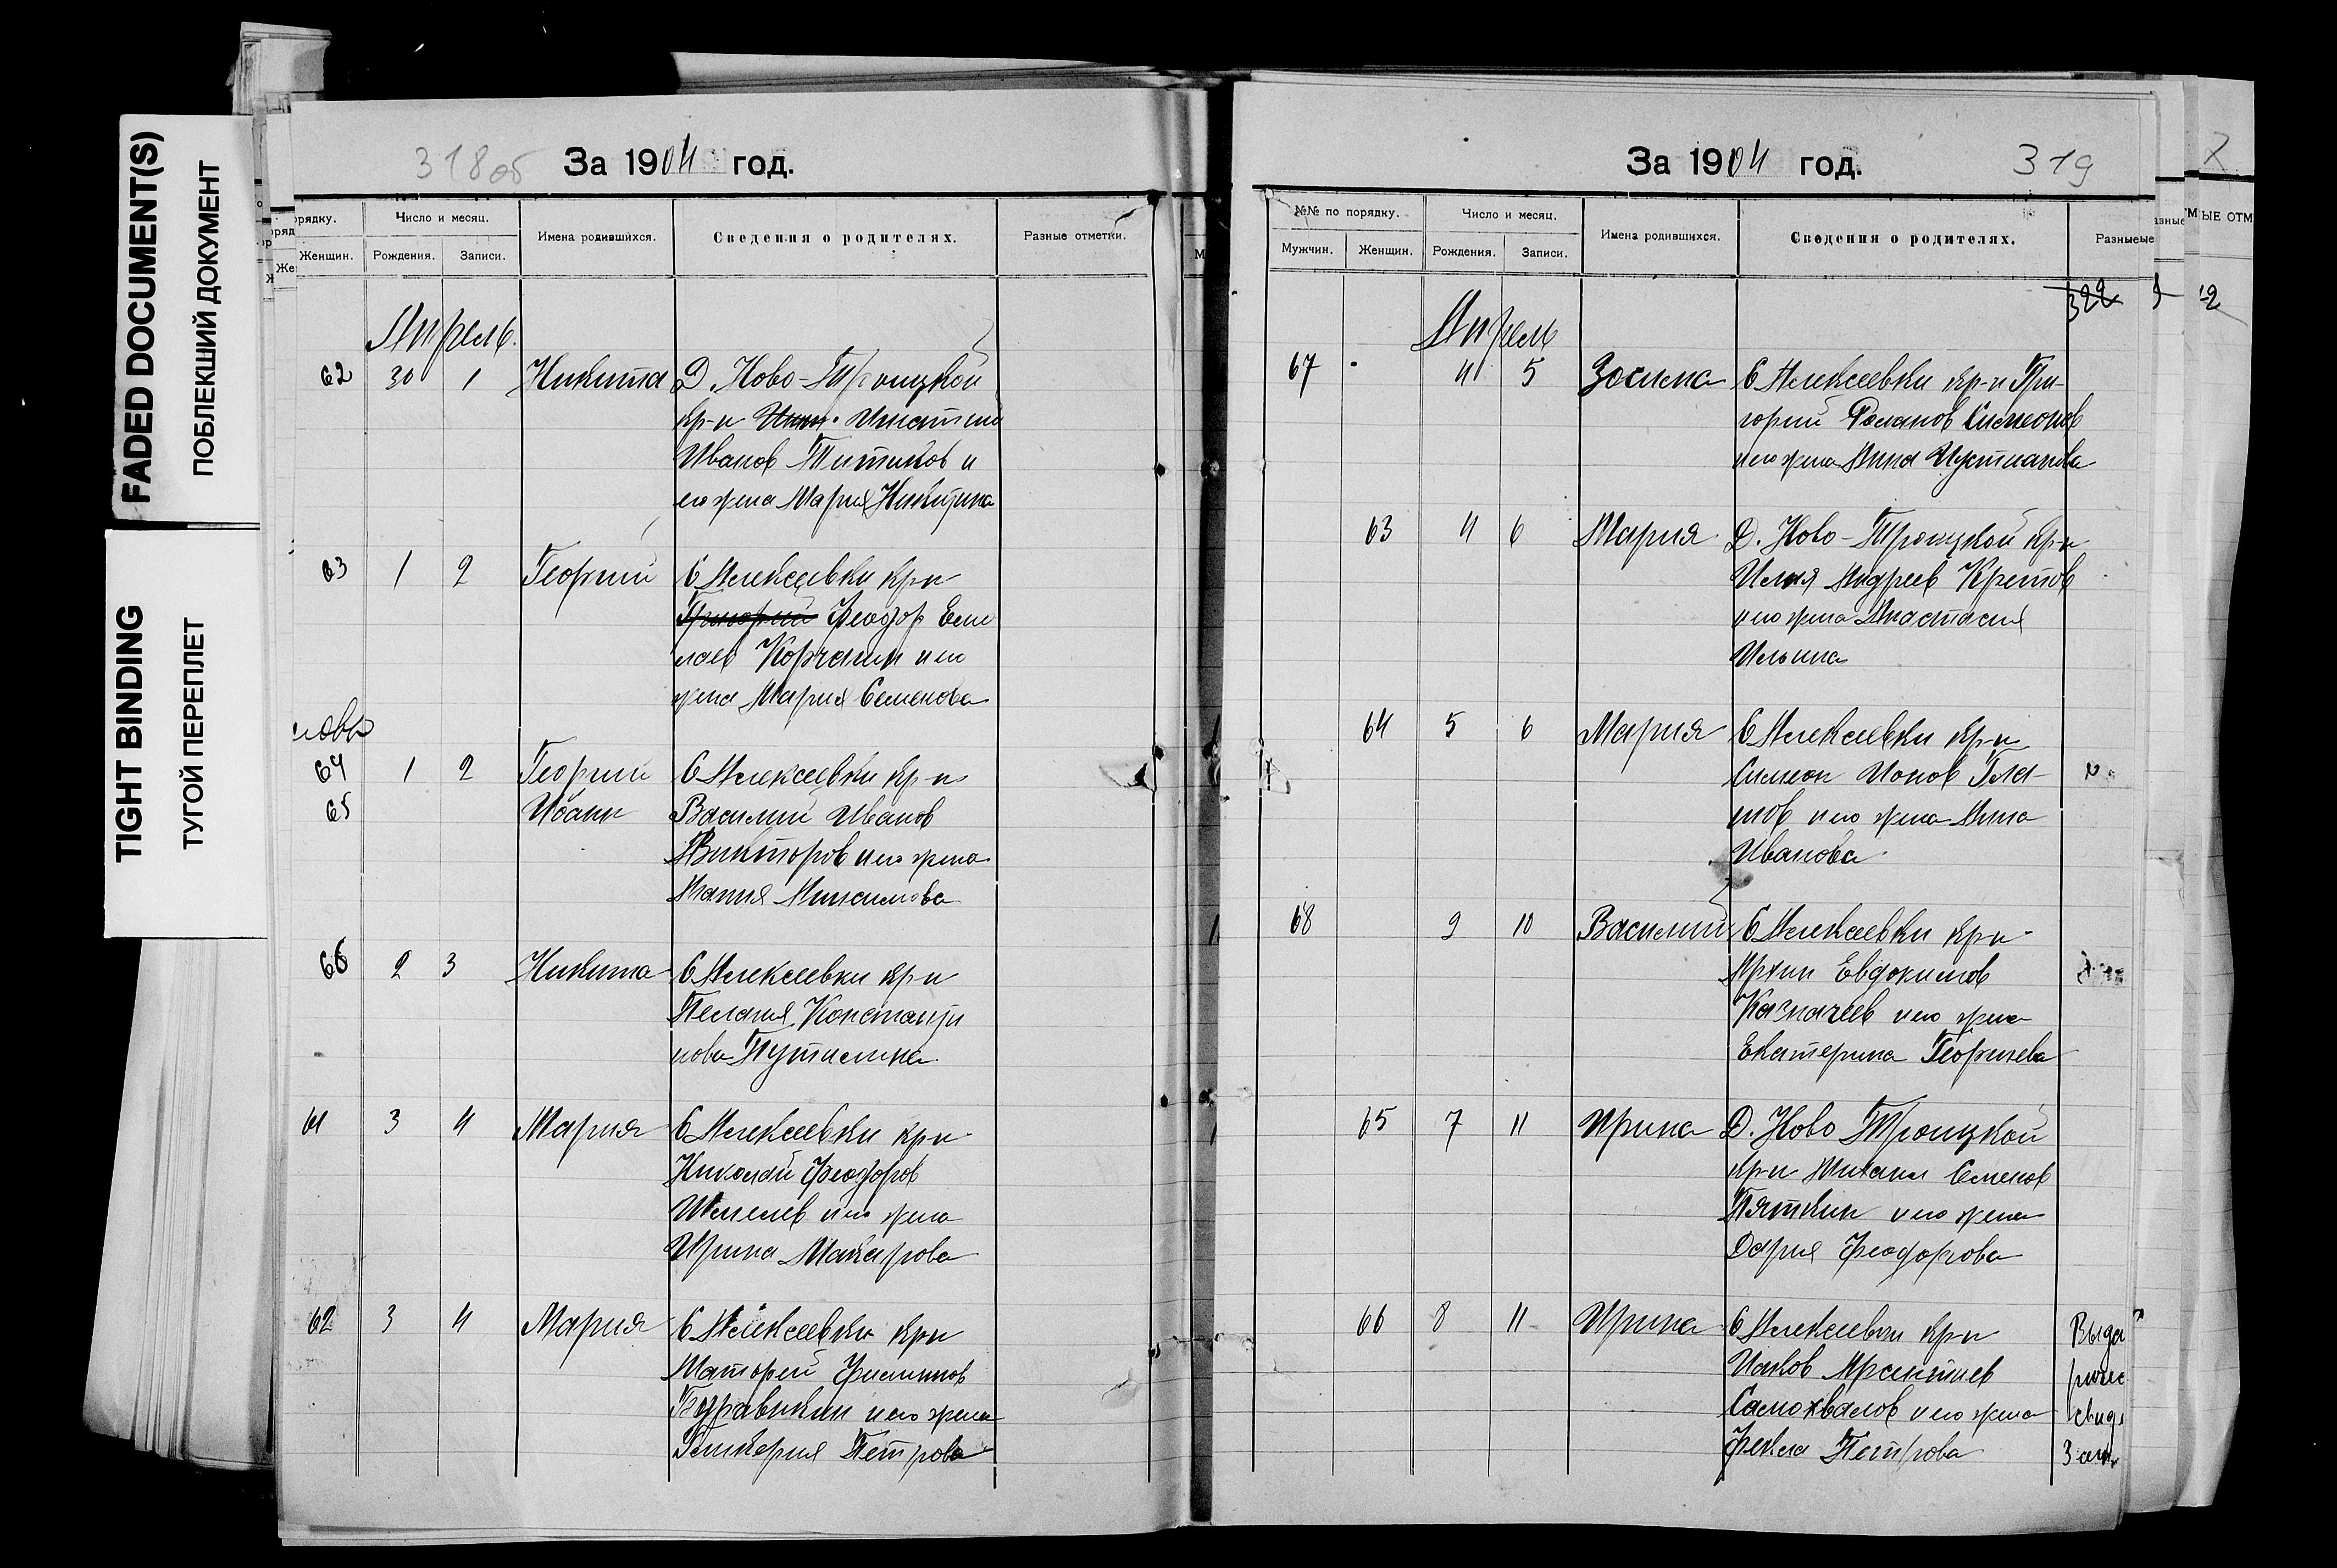 FADED DOCUMENT(S)
ПОБЛЕКШИЙ ДОКУМЕНТ
TIGHT BINDING
ТУГОЙ ПЕРЕПЛЕТ
318об За 1904 год.
орядку. Число и месяц. Имена родившихся. Сведения о родителях. Разные отметки.
Женщин. Рождения. Записи.
Апрель.
62 30 1 Никита Д. Ново-Троицкой
кр-н Игнатий
Иванов Титиков и
его жена Мария Никитина
63 1 2 Георгий С Алексеевки кр-н
Григорий Феодор Еме
лаев Корчагин и его
жена Мария Семенова
64 1 2 Георгий С Алексеевки кр-н
65 Иоанн Василий Иванов
Викторов и его жена
66 2 3 Никита С Алексеевки кр-н
Пелагия Константи
нова Путилина
61 3 4 Мария С Алексеевки кр-н
Николай Феодоров
Шмелев и его жена
Ирина Макарова
62 3 4 Мария С Алексеевки кр-н
Филиппов
и его жена
Гликерия Петрова
За 1904 год. 319
№№ по порядку. Число и месяц. Имена родившихся. Сведения о родителях. Разные
Мужчин. Женщин. Рождения. Записи.
322
Апрель
67 4 5 Зосима С Алексеевки кр-н Гри-
горий Романов Симеонов
и его жена Анна Иустианова
63 4 6 Мария Д. Ново-Троицкой кр-н
Илия Андреев Кретов
и его жена Анастасия
Ильина
64 5 6 Мария С Алексеевки кр-н
Симеон Ионов
и его жена Анна
Иванова
68 9 10 Василий С Алексеевки кр-н
Архип Евдокимов
Казначеев и его жена
Екатерина Георгиева
65 7 11 Ирина Д. Ново Троицкой
кр-н Михаил Семенов
Пяткин и его жена
Дария Феодорова
66 8 11 Ирина С Алексеевки кр-н Выда
Иаков
Самохвалов и его жена свид
Фекла Петрова